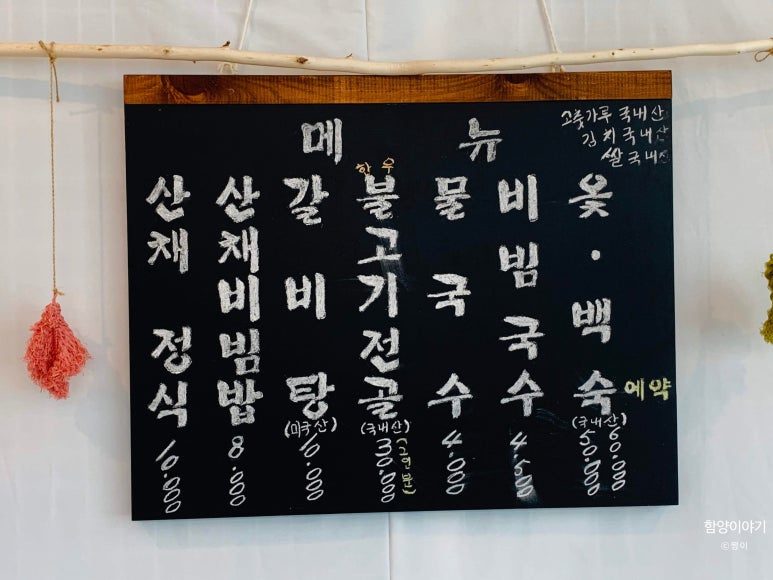 메뉴
고춧가루 국내산
김치 국내산
쌀 국내산
산채 정식 10.000
산채비빔밥 8.000
갈비탕 (미국산) 10.000
한우 불고기전골 (국내산) 30.000 (2인분)
물국수 4.000
비빔국수 4.500
옻·백숙 예약 (국내산) 50.000 60.000
함양이야기
ⓒ뭥이